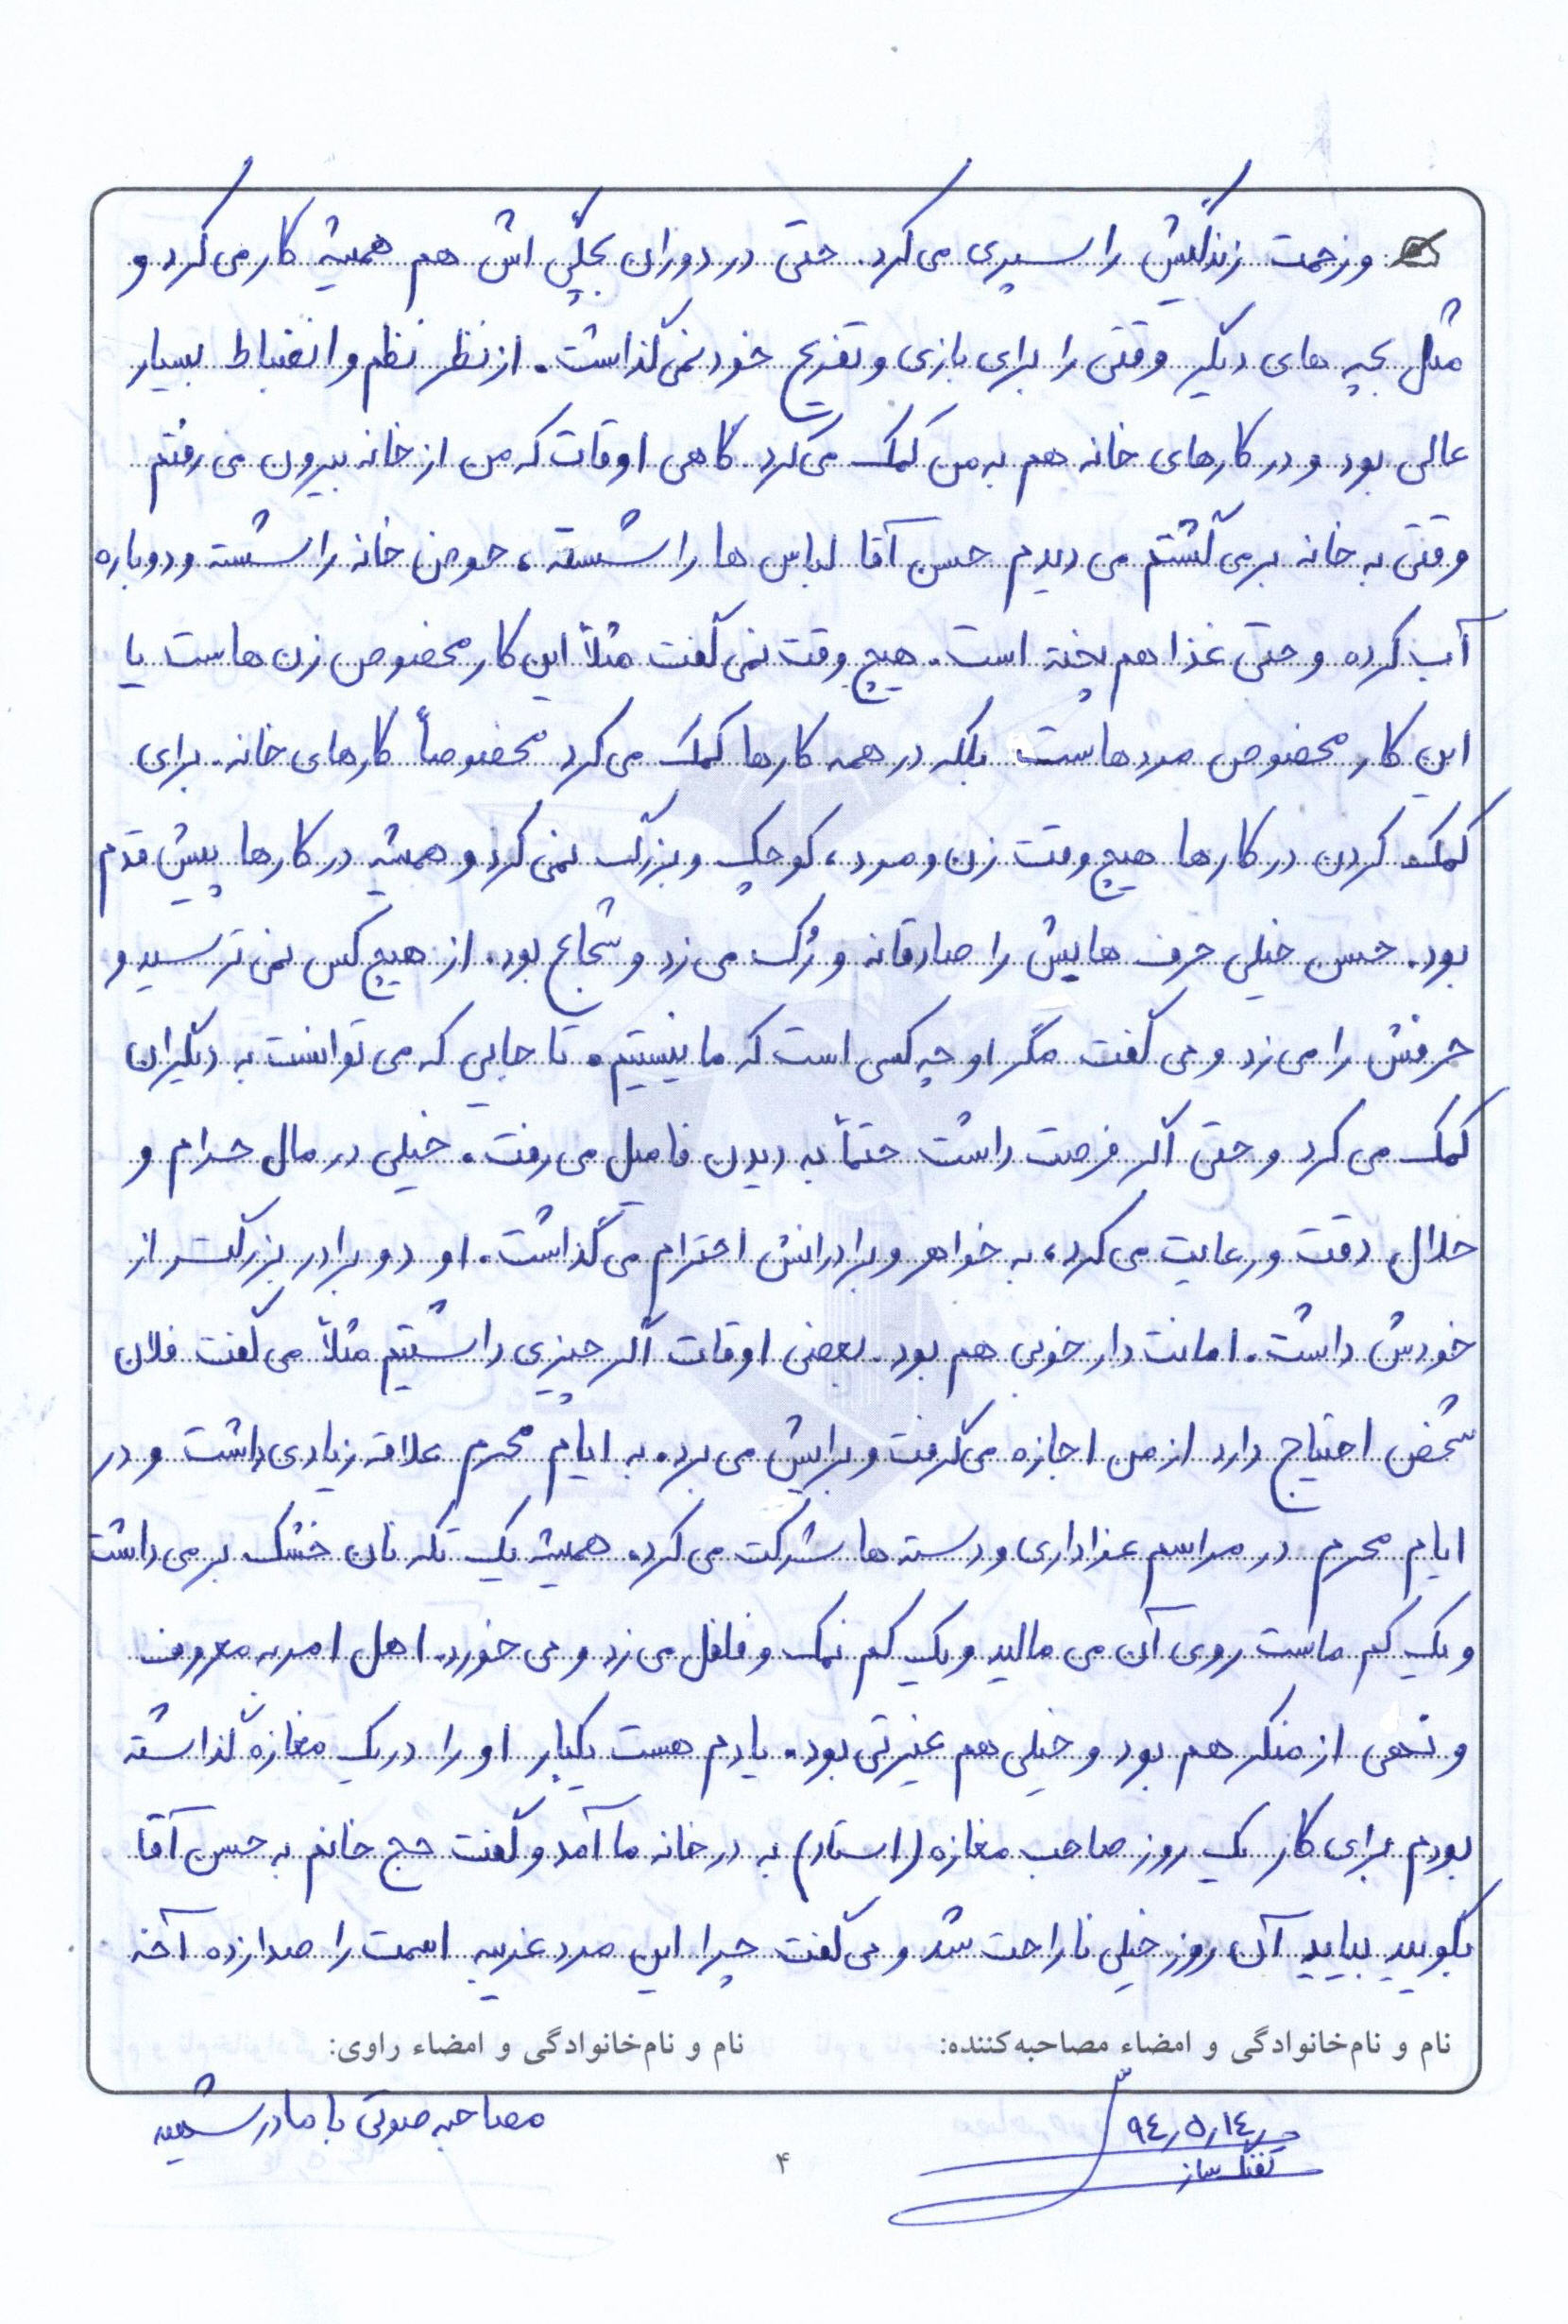 و زحمت زندگیش را سپری می‌کرد. حتی در دوران بچگی اش هم همیشه کار می‌کرد و
مثل بچه های دیگر وقتی را برای بازی و تفریح خود نمی‌گذاشت. از نظر نظم و انضباط بسیار
عالی بود و در کارهای خانه هم به من کمک می‌کرد. گاهی اوقات که من از خانه بیرون می رفتم
وقتی به خانه برمی‌گشتم می دیدم حسن آقا لباس ها را شسته، حوض خانه را شسته و دوباره
آب کرده و حتی غذا هم پخته است. هیچ وقت نمی گفت مثلاً این کار مخصوص زن هاست یا
این کار مخصوص مردهاست بلکه در همه کارها کمک می‌کرد مخصوصاً کارهای خانه. برای
کمک کردن در کارها هیچ وقت زن و مرد، کوچک و بزرگ نمی‌کرد و همیشه در کارها پیش قدم
بود. حسن خیلی حرف هایش را صادقانه و رُک می زد و شجاع بود. از هیچ کس نمی ترسید و
حرفش را می زد و می گفت مگر او چه کسی است که ما نیستیم. تا جایی که می توانست به دیگران
کمک می کرد و حتی اگر فرصت داشت حتماً به دیدن فامیل می رفت. خیلی در مال حرام و
حلال دقت و رعایت می کرد، به خواهر و برادرانش احترام می گذاشت. او دو برادر بزرگتر از
خودش داشت. امانت دار خوبی هم بود. بعضی اوقات اگر چیزی داشتیم مثلاً می گفت فلان
شخص احتیاج دارد از من اجازه می گرفت و برایش می برد. به ایام محرم علاقه زیادی داشت و در
ایام محرم در مراسم عزاداری و دسته ها شرکت می کرد. همیشه یک تکه نان خشک بر می داشت
و یک کم ماست روی آن می مالید و یک کم نمک و فلفل می زد و می خورد. اهل امر به معروف
و نهی از منکر هم بود و خیلی هم غیرتی بود. یادم هست یکبار او را در یک مغازه گذاشته
بودم برای کار یک روز صاحب مغازه (استاد) به در خانه ما آمد و گفت حج خانم به حسن آقا
بگویید بیاید آن روز خیلی ناراحت شد و می گفت چرا این مرد غریبه اسمت را صدا زده آخه
نام و نام‌خانوادگی و امضاء مصاحبه‌کننده: نام و نام‌خانوادگی و امضاء راوی:
۹٤٫٥٫۱٤ مصاحبه صوتی با مادر شهید
تفنگ ساز
۴